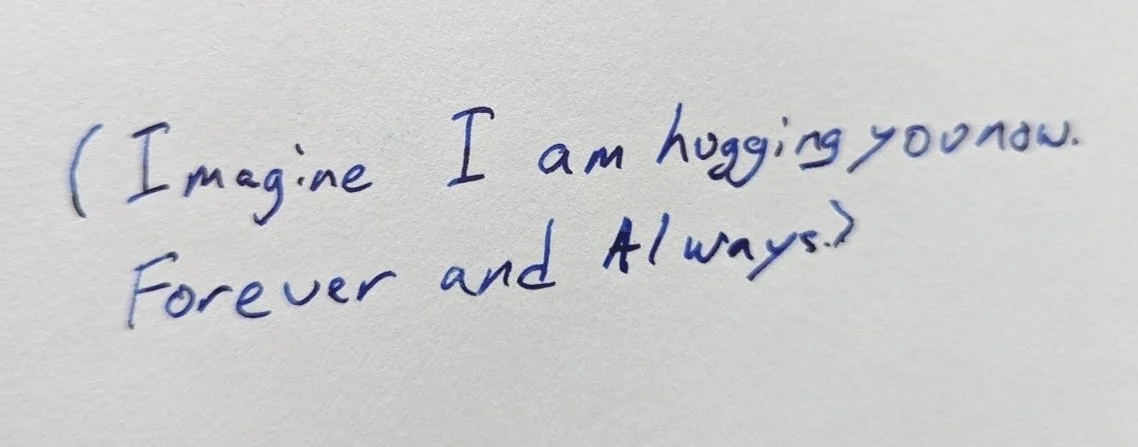 (Imagine I am hugging you now.
Forever and Always.)